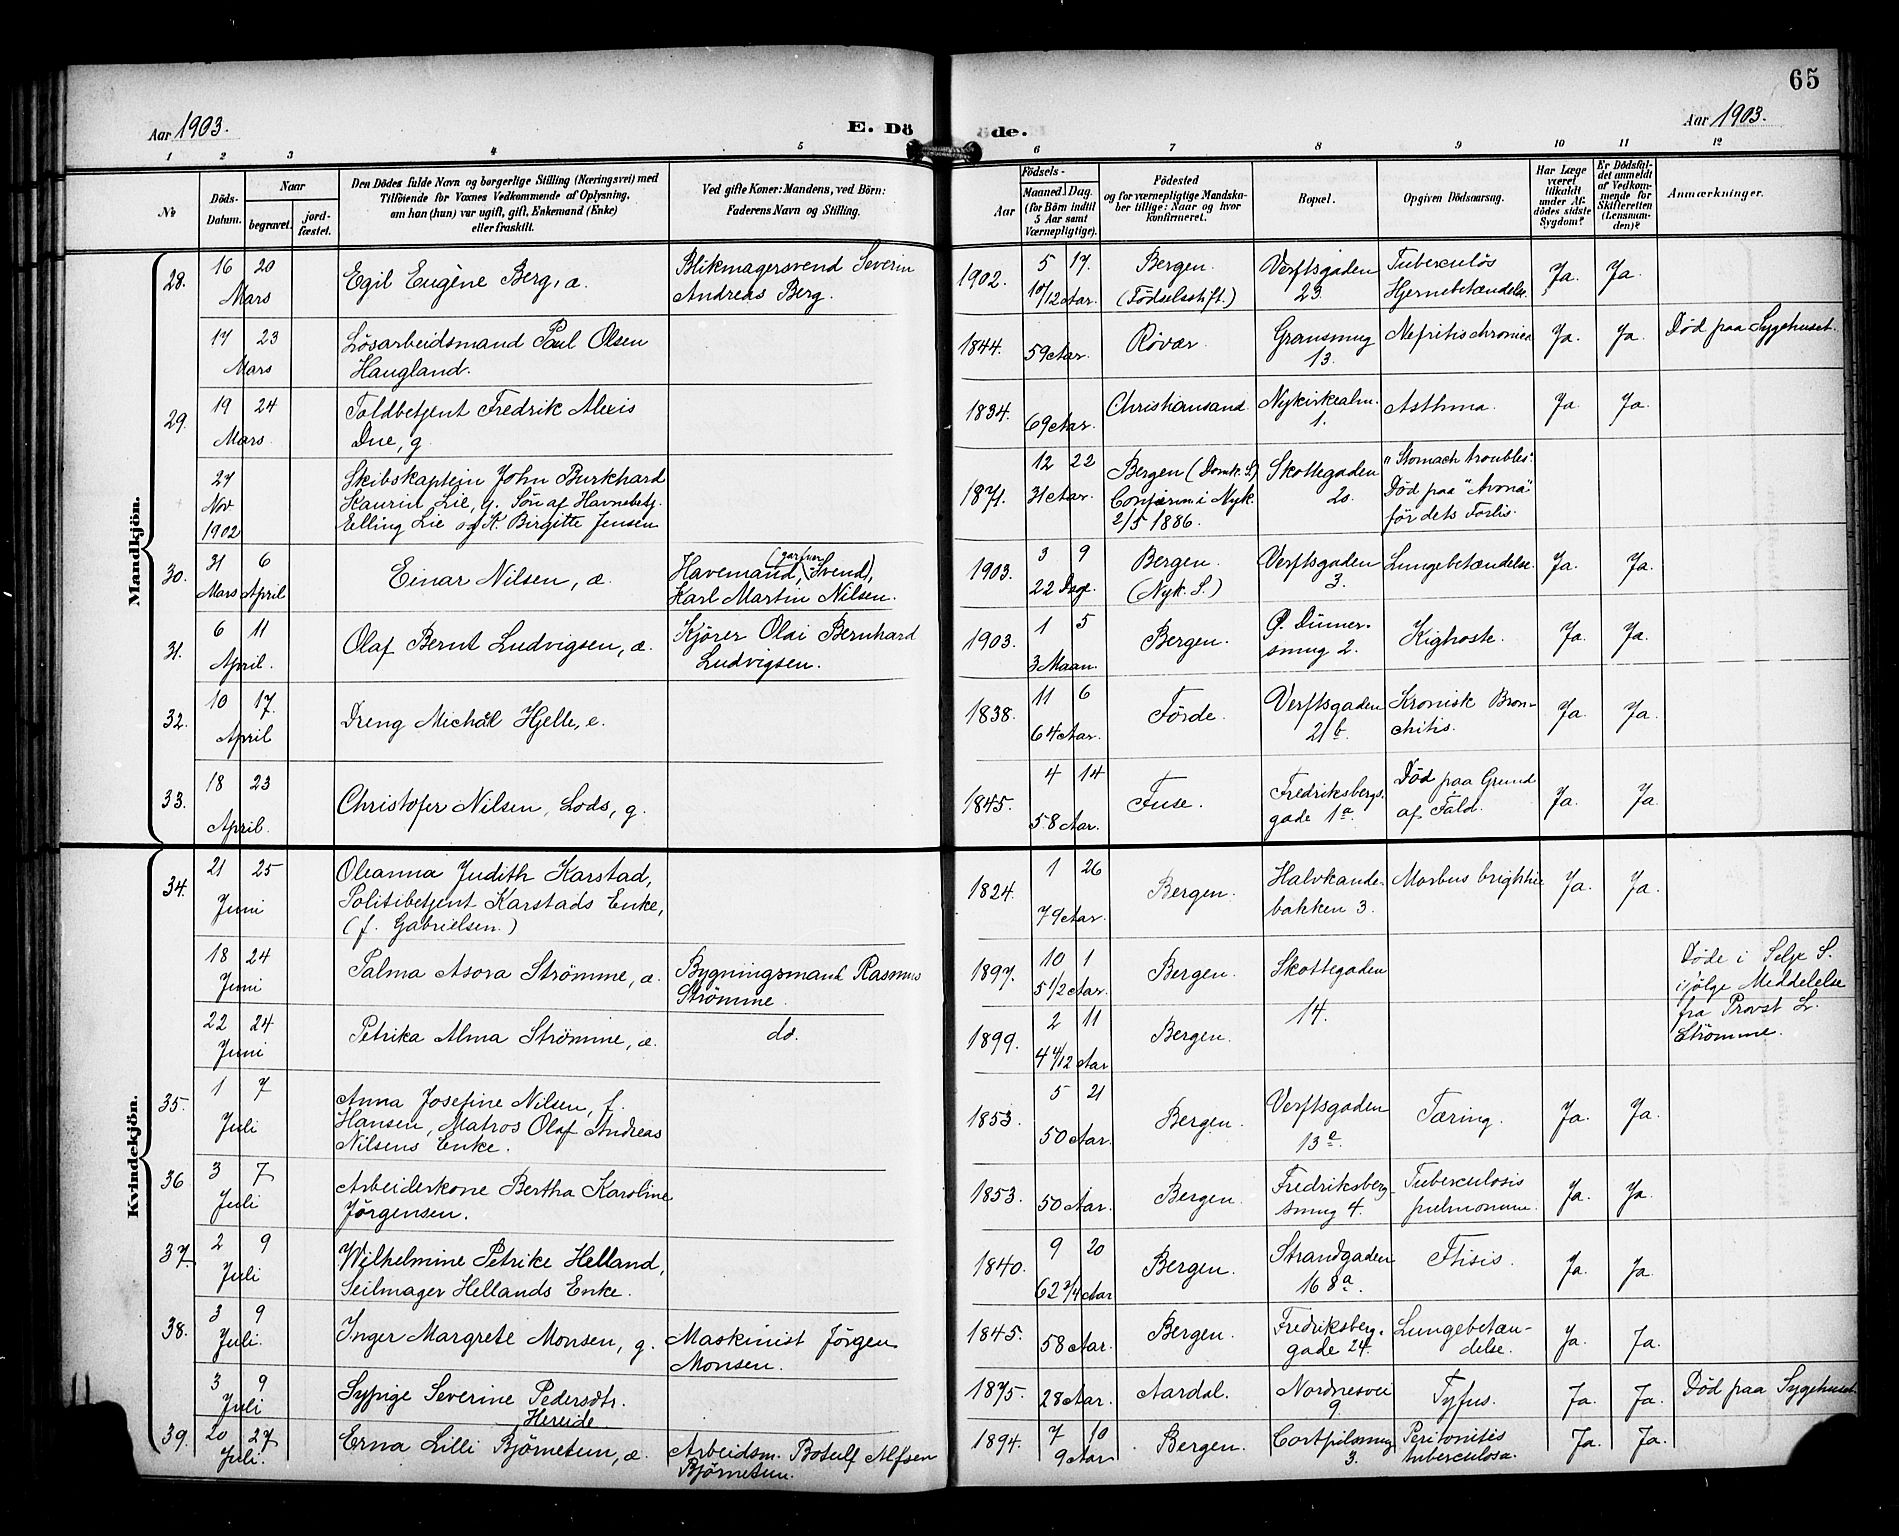 65
Aar 1903.
E. Dö
öde.
Aar 1903.
1 2 3 4 5 6 7 8 9 10 11 12
No
Döds-
Datum.
Naar
begravet.
jord-
fæstet.
Den Dödes fulde Navn og borgerlige Stilling (Næringsvei) med
Tilföiende for Voxnes Vedkommende af Oplysning,
om han (hun) var ugift, gift, Enkemand (Enke)
eller fraskilt.
Ved gifte Koner: Mandens, ved Börn:
Faderens Navn og Stilling.
Aar
Födsels-
Maaned. Dag.
(for Börn indtil
5 Aar samt
Værnepligtige).
Födested
og for værnepligtige Mandska-
ber tillige: Naar og hvor
konfirmeret.
Bopæl.
Opgiven Dödsaarsag.
Har Læge
været
tilkaldt
under Af-
dödes sidste
Sygdom?
Er Dödsfal-
det anmeldt
af Vedkom-
mende for
Skifteretten
(Lensman-
den)?
Anmærkninger.
Mandkjön.
28. 16 20 Mars
Egil Eugène Berg, æ.
Blikmagersvend Severin
Andreas Berg.
1902. 5 17. 10/12 Aar.
Bergen.
(Födselsstift.)
Verftsgaden
23.
Tuberculös
Hjernebetændelse.
Ja. Ja.
17 23 Mars
Lösarbeidsmand Paul Olsen
Haugland.
1844. 59 Aar.
Røvær.
Gransmug
13.
Nefritis chronica
Ja. Ja.
Död paa Sygehuset.
29. 19 24 Mars
Toldbetjent Fredrik Alexis
Due, g.
1834. 69 Aar.
Christiansand
Nykirkealm.
1.
Asthma.
Ja. Ja.
27
Nov
1902
Skibskaptein John Burkhard
Kaurin Lie, g. Sön af Havnebetj.
Elling Lie og K. Birgitte Jensen
1871. 12 22 31 Aar.
Bergen (Domk. S.)
Confirm. i Nyk.
2/5 1886.
Skottegaden
20.
"Stomach troubles".
Död paa "Avona"
för dets Forlis.
30. 31 6 Mars April
Einar Nilsen, æ.
Havemand, (garfner Svend),
Karl Martin Nilsen.
1903. 3 9 22 Dage.
Bergen.
(Nyk. S.)
Verftsgaden
3.
Lungebetændelse.
Ja. Ja.
31. 6 11 April.
Olaf Bernt Ludvigsen, æ.
Kjörer Olai Bernhard
Ludvigsen.
1903. 1 5 3 Maan.
Bergen.
smug 2.
Kighoste.
Ja. Ja.
32. 10 17. April
Dreng Michäl Hjelle, e.
1838. 11 6 64 Aar.
Förde.
Verftsgaden
21 b.
Kronisk Bron-
chitis.
Ja. Ja.
33. 18 23 April.
Christofer Nilsen, Lods, g.
1845. 4 14 58 Aar.
Fuse.
Fredriksbergs.
gade 1 a.
Död paa Grund
af Fald.
Ja. Ja.
Kvindekjön.
34. 21 25 Juni
Oleanna Judith Karstad,
Politibetjent Karstads Enke,
(f. Gabrielsen.)
1824. 1 26 79 Aar.
Bergen.
Halvkande-
bakken 3.
Morbus brightii
Ja. Ja.
18 24 Juni
Palma Asora Strömme, æ.
Bygningsmand Rasmus
Strömme.
1897. 10 1 5 1/2 Aar.
Bergen.
Skottegaden
14.
Döde i Selje S.
ifölge Meddelelse
fra Provst L.
Strömme.
22 24 Juni
Petrika Alma Strömme, æ.
do.
1899. 2 11 4 4/12 Aar
Bergen.
35. 1 7 Juli
Anna Josefine Nilsen, f.
Hansen, Matros Olaf Andreas
Nilsens Enke.
1853. 5 21 50 Aar.
Bergen.
Verftsgaden
Tæring.
Ja. Ja.
36 3 7 Juli
Arbeiderkone Bertha Karoline
Jörgensen.
1853. 50 Aar.
Bergen.
Fredriksberg-
smug 4.
Tuberculosis
pulmonum.
Ja. Ja.
37. 2 9 Juli
Wilhelmine Petrike Helland,
Seilmager Hellands Enke.
1840. 9 20 62 3/4 Aar
Bergen.
Strandgaden
168 a.
Ftisis.
Ja. Ja.
38. 3 9 Juli.
Inger Margrete Monsen, g.
Maskinist Jörgen
Monsen.
1845. 58 Aar.
Bergen.
Fredriksberg.
gade 24.
Lungebetæn-
delse.
Ja. Ja.
3 9 Juli
Sypige Severine Pedersdtr.
Hereide
1875. 28 Aar.
Aardal.
Nordnesvei
9.
Tyfus.
Ja. Ja.
Död paa Sygehuset
39. 20 27 Juli.
Erna Lilli Björnetun, æ.
Arbeidsm. Botulf Alfsen
Björnetun.
1894. 7 10 9 Aar
Bergen.
Cortpilsmug
3.
Peritonitis
tuberculosa.
Ja. Ja.